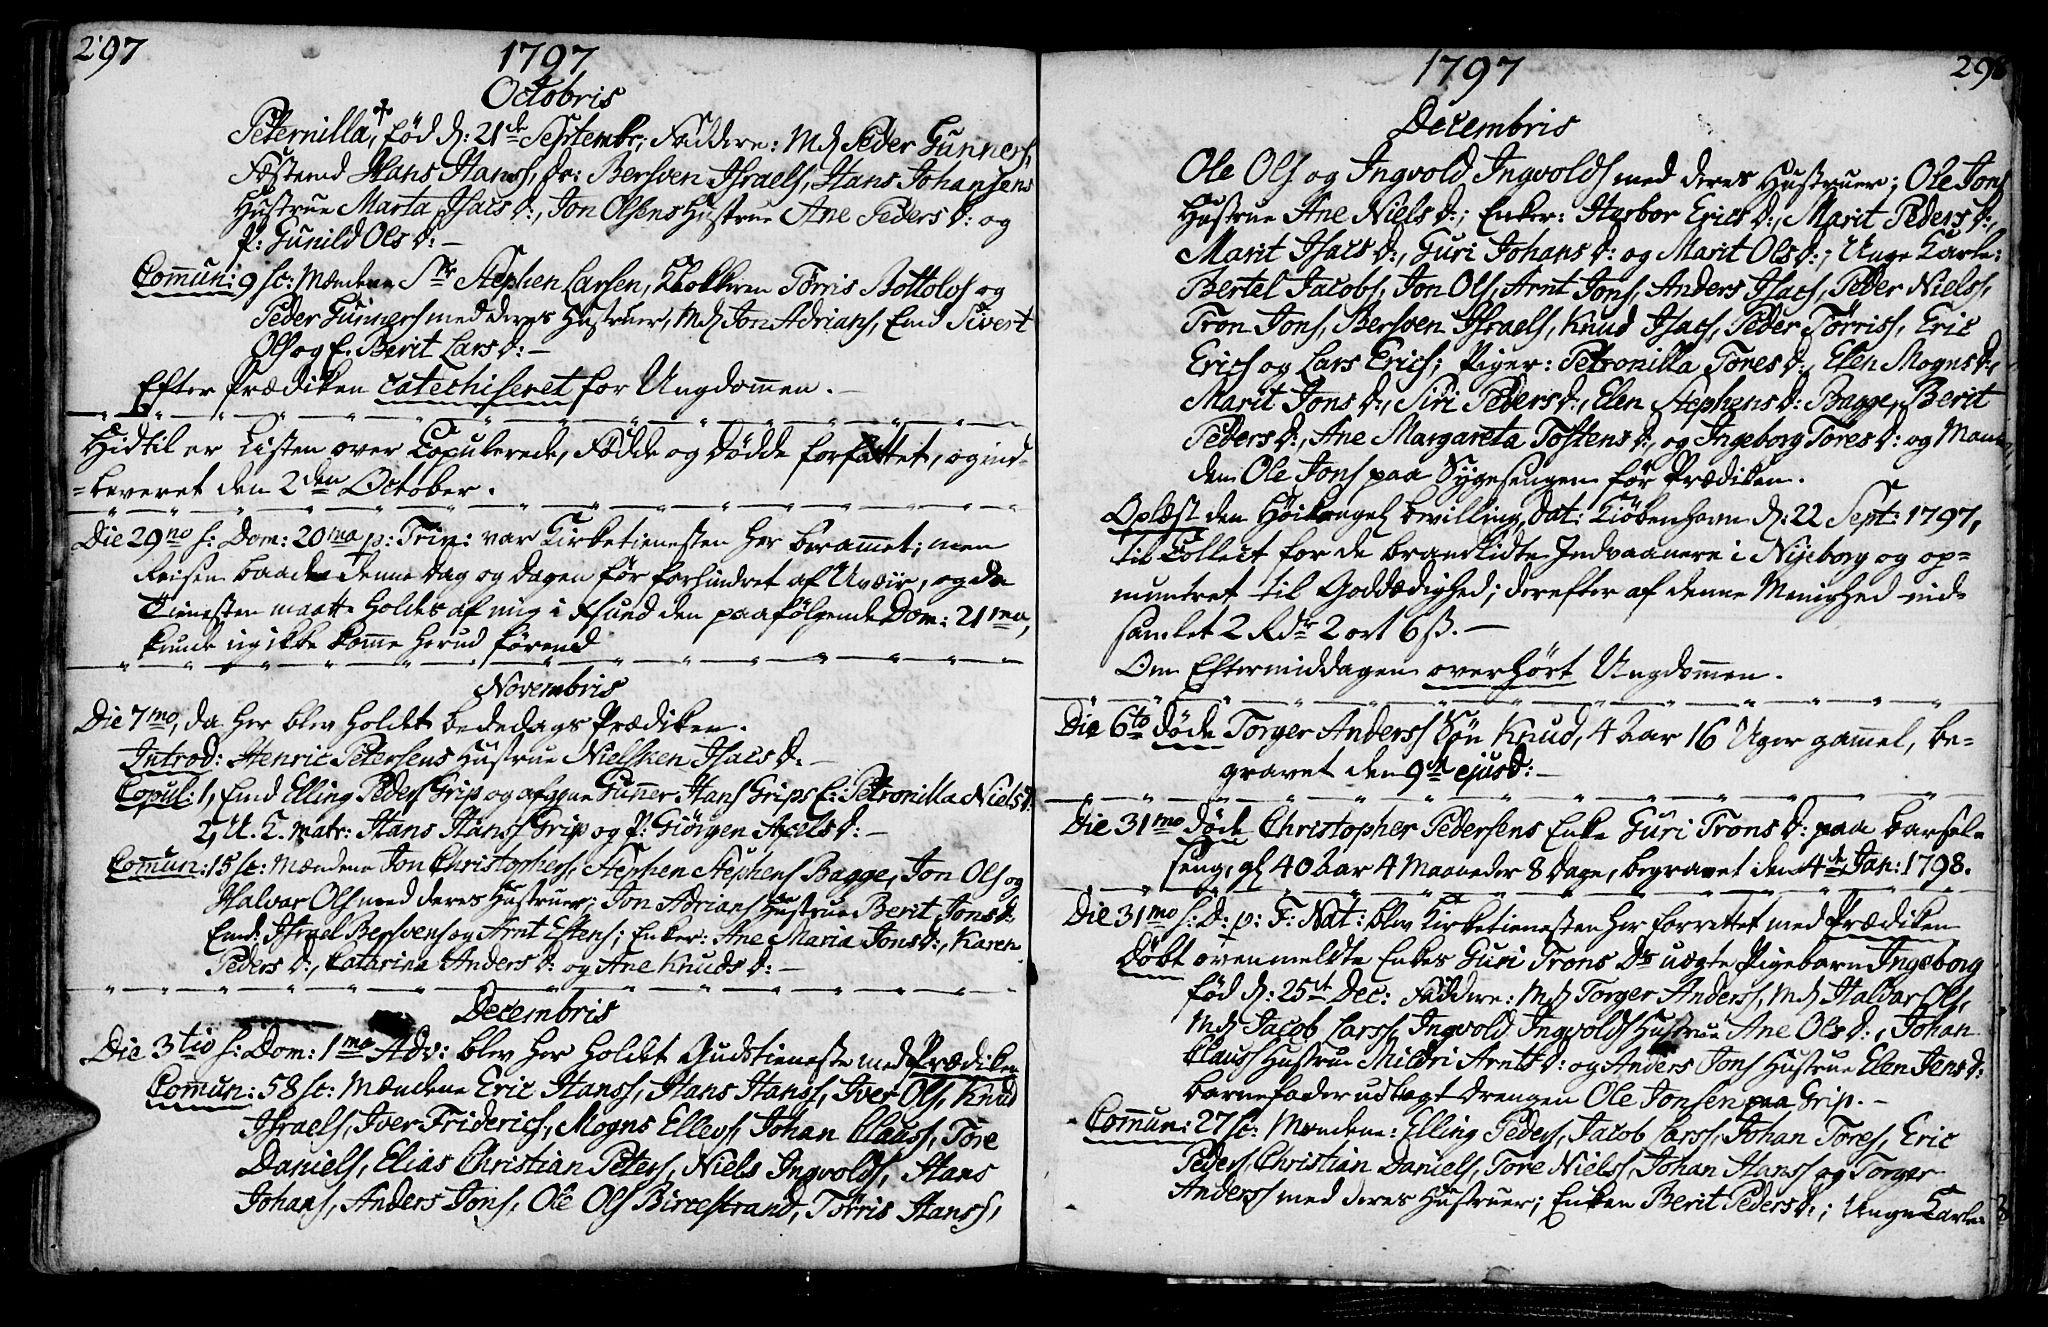 297
1797
Octobris
Peternilla, fød d: 21de Septembr, Faddere: Md Peder Gunners,
Festemd Hans Hanss, Dr: Bersven Israels, Hans Johansens
Hustrue Marta Isacs d:, Jon Olsens Hustrue Ane Peders d: og
P: Gunild Ols d: —
Com̄un: 9 sc: Mændene Sr Stephen Larsen, Klokkeren Tørris Bottolvs og
Peder Gunners med deres Hustruer, Md Jon Adrians, Emd Sivert
Ols og E. Berit Lars d: —
Efter Prædiken catechiseret for Ungdom̄en. —
Hidtil er Listen over Copulerede, Fødde og Dødde forfattet, og ind-
-leveret den 2den October.
Die 29no s: Dom: 20ma p: Trin: var Kirketienesten her beram̄et; men
Reisen baade denne Dag og dagen før forhindret af Uveir, og da
Tienesten maatte holdes af mig i Xsund den paafølgende Dom: 21ma,
kunde ieg ikke kom̄e herud førend
Novembris
Die 7mo, da her blev holdet bededags Prædiken.
Introd: Henric Petersens Hustrue Nielsken Isacs d. —
Copul: 1, Emd Elling Peders Grip og afgne Gunner Hans Grips E: Petronilla Niels d.
2, U. K. matr: Hans Hanss Grip og P: Giørgen Axels d: —
Com̄un: 15 sc: Mændene Jon Christophers, Stephen Stephens Bagge, Jon Ols og
Halvar Ols med deres Hustruer; Jon Adrians Hustrue Berit Jons d:
Emd: Israel Bersvens og Arnt Estens; Enker: Ane Maria Jons d:, Karen
Peders d:, Catarina Anders d: og Ane Knuds d: —
Decembris
Die 3tio s: Dom: 1ma Adv: blev her holdet Gudstieneste med Prædiken
Com̄un: 58 sc: Mændene Eric Hanss, Hans Hanss, Iver Ols, Knud
Israels, Iver Friderics, Mogns Ellevs, Johan Clauss, Tore
Daniels, Elias Christian Peters, Niels Ingvolds, Hans
Johans, Anders Jons, Ole Ols Bircestrand, Tørris Hanss,
298
1797
Decembris
Ole Ols og Ingvold Ingvolds med deres Hustruer; Ole Jons
Hustrue Ane Niels d:; Enker: Harbor Erics d:, Marit Peders d:,
Marit Isacs d:, Guri Johans d: og Marit Ols d:; Unge Karle:
Bertel Jacobs, Jon Ols, Arnt Jons, Anders Isacs, Peder Niels,
Tron Jons, Bersven Israels, Knud Isacs, Peder Tørriss, Eric
Erics og Lars Erics; Piger: Petronilla Tores d:, Elen Mogns d:,
Marit Jons d:, Siri Peders d:, Elen Stephens d: Bagge, Berit
Peders d:, Ane Margareta Tostens d:, og Ingeborg Tores d: og Man-
den Ole Jons paa Sygesengen før Prædiken.
Oplæst den Høikongel bevilling, dat: Kiøbenhavn d: 22 Sept: 1797,
til Collect for de brandlidte Indvaanere i Nyeborg og op-
muntret til Goddædighed; derefter af denne Menighed ind-
samlet 2 Rdr 2 ort 6 ß. —
Om Eftermiddagen overhørt Ungdom̄en.
Die 6to døde Torger Anderss Søn Knud, 4 Aar 16 Uger gammel, be-
gravet den 9de ejusd: —
Die 31mo døde Christopher Pedersens Enke Guri Trons d: paa barsel-
seng, gl 40 Aar 4 Maaneder 8 dage, begravet den 4de Jan: 1798.
Die 31mo s: D: p: F: Nat: blev Kirketienesten her forrettet med Prædiken
Døbt ovenmeldte Enkes Guri Trons Ds uægte Pigebarn Ingeborg
fød d: 25de Dec: Faddere: Md Torger Anderss, Md Halvar Ols,
Md Jacob Larss, Ingvold Ingvolds Hustrue Ane Ols d:, Johan
Clauss Hustrue Mildri Arnts d: og Anders Jons Hustrue Elen Jens d:
barnefader udlagt drengen Ole Jonsen paa Grip. —
Com̄un: 27 sc: Mændene: Elling Peders, Jacob Larss, Johan Tores, Eric
Peders, Christian Daniels, Tore Niels, Johan Hanss og Torger
Anderss med deres Hustruer; Enken Berit Peders d:; Unge Karle: